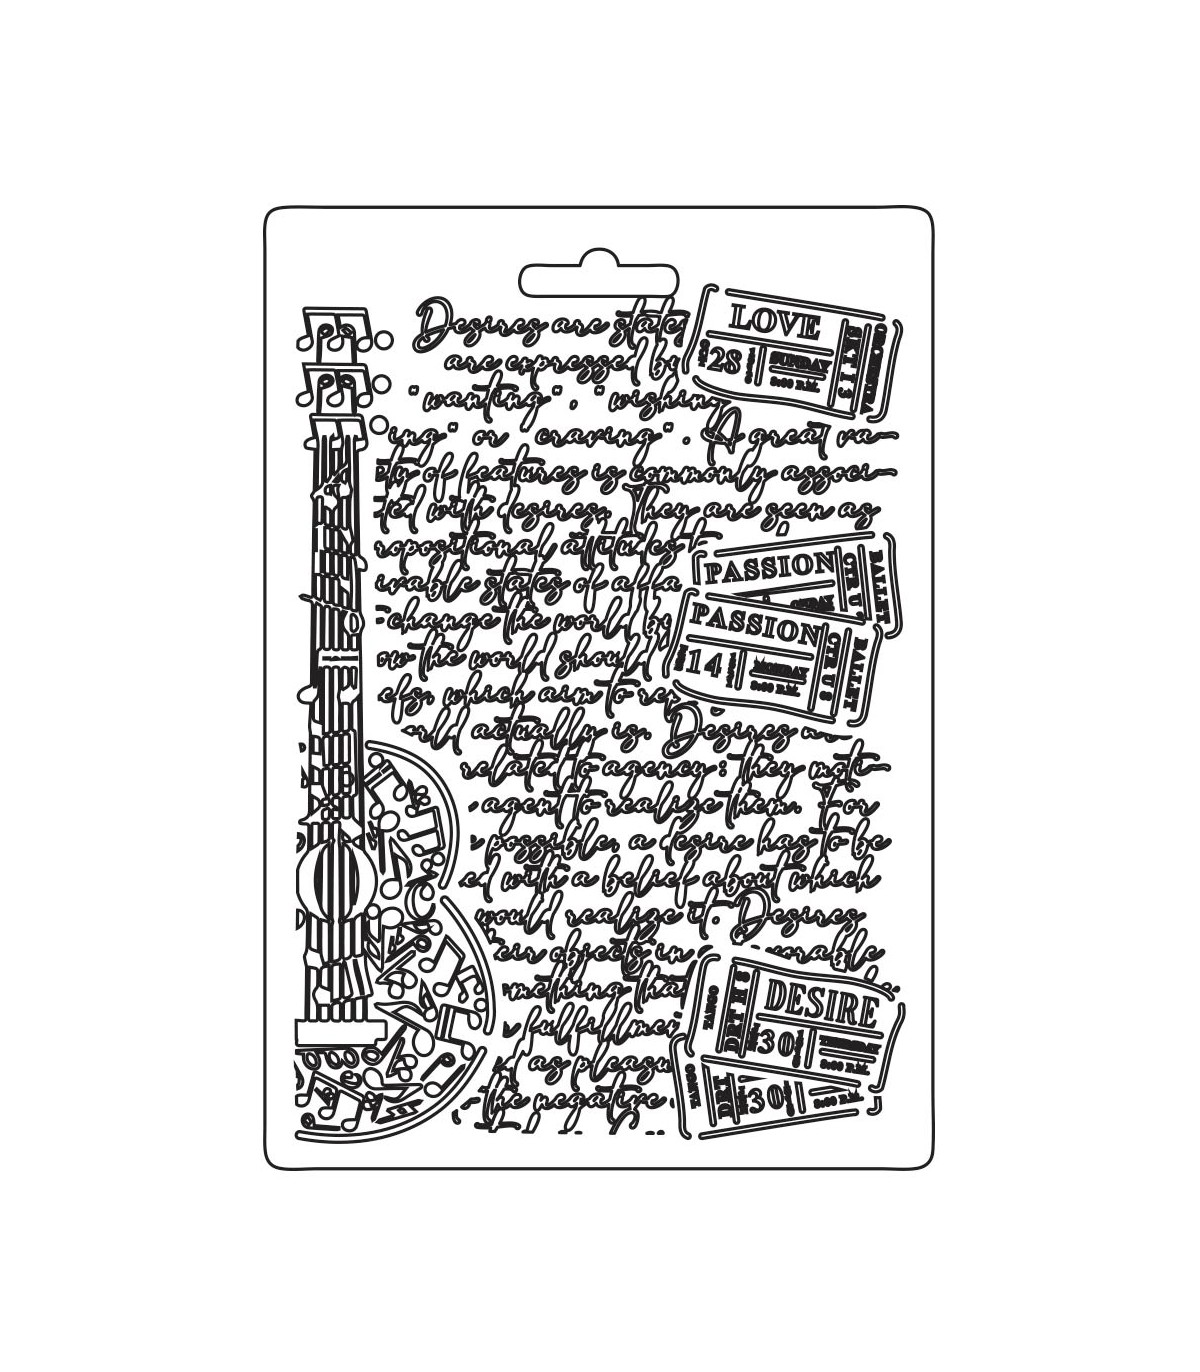 Desires are state
are expressed by
"wanting", "wishin
ing" or craving". A great va-
ety of features is commonly associ-
ted with desires. They are seen as
ropositional attitudes t
ivable states of affa
change the world by
ow the world should
efs, which aim to rep
rld actually is. Desires
related to agency: they moti-
agent to realize them. For
possible, a desire has to be
ed with a belief about which
would realize it. Desires
eir objects in
rable
mething that
fulfillmen
as pleasu
the negative
LOVE
28
SUNDAY
8:00 P.M.
SKT 13
ORCHESTRA
PASSION
CTR U
BALLET
PASSION
14
MONDAY
8:00 P.M.
CTR U 8
BALLET
TANGO
DRT H 8
DESIRE
30
THURSDAY
8:00 P.M.
TANGO
DRT
30
8:00 P.M.